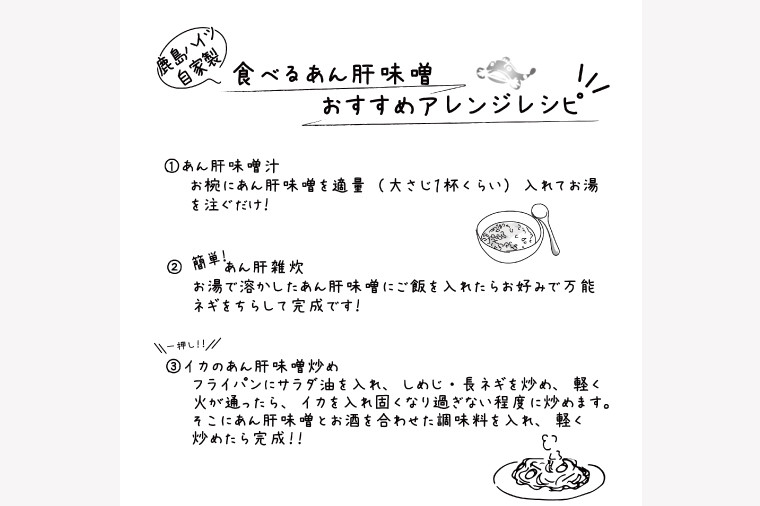 鹿島ハイツ
自家製
食べるあん肝味噌
おすすめアレンジレシピ
①あん肝味噌汁
お椀にあん肝味噌を適量（大さじ1杯くらい）入れてお湯
を注ぐだけ!
② 簡単!あん肝雑炊
お湯で溶かしたあん肝味噌にご飯を入れたらお好みで万能
ネギをちらして完成です!
一押し!!
③イカのあん肝味噌炒め
フライパンにサラダ油を入れ、しめじ・長ネギを炒め、軽く
火が通ったら、イカを入れ固くなり過ぎない程度に炒めます。
そこにあん肝味噌とお酒を合わせた調味料を入れ、軽く
炒めたら完成!!